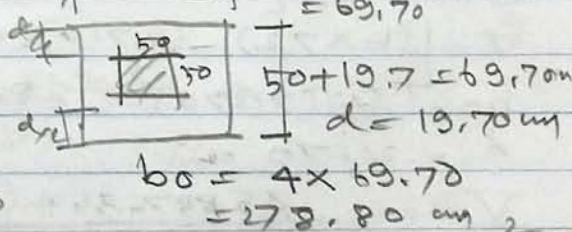 = 69.70
d/2
50
50
50+19.7 = 69.70 cm
d/2
d = 19.70 cm
bo = 4 × 69.70
= 278.80 cm